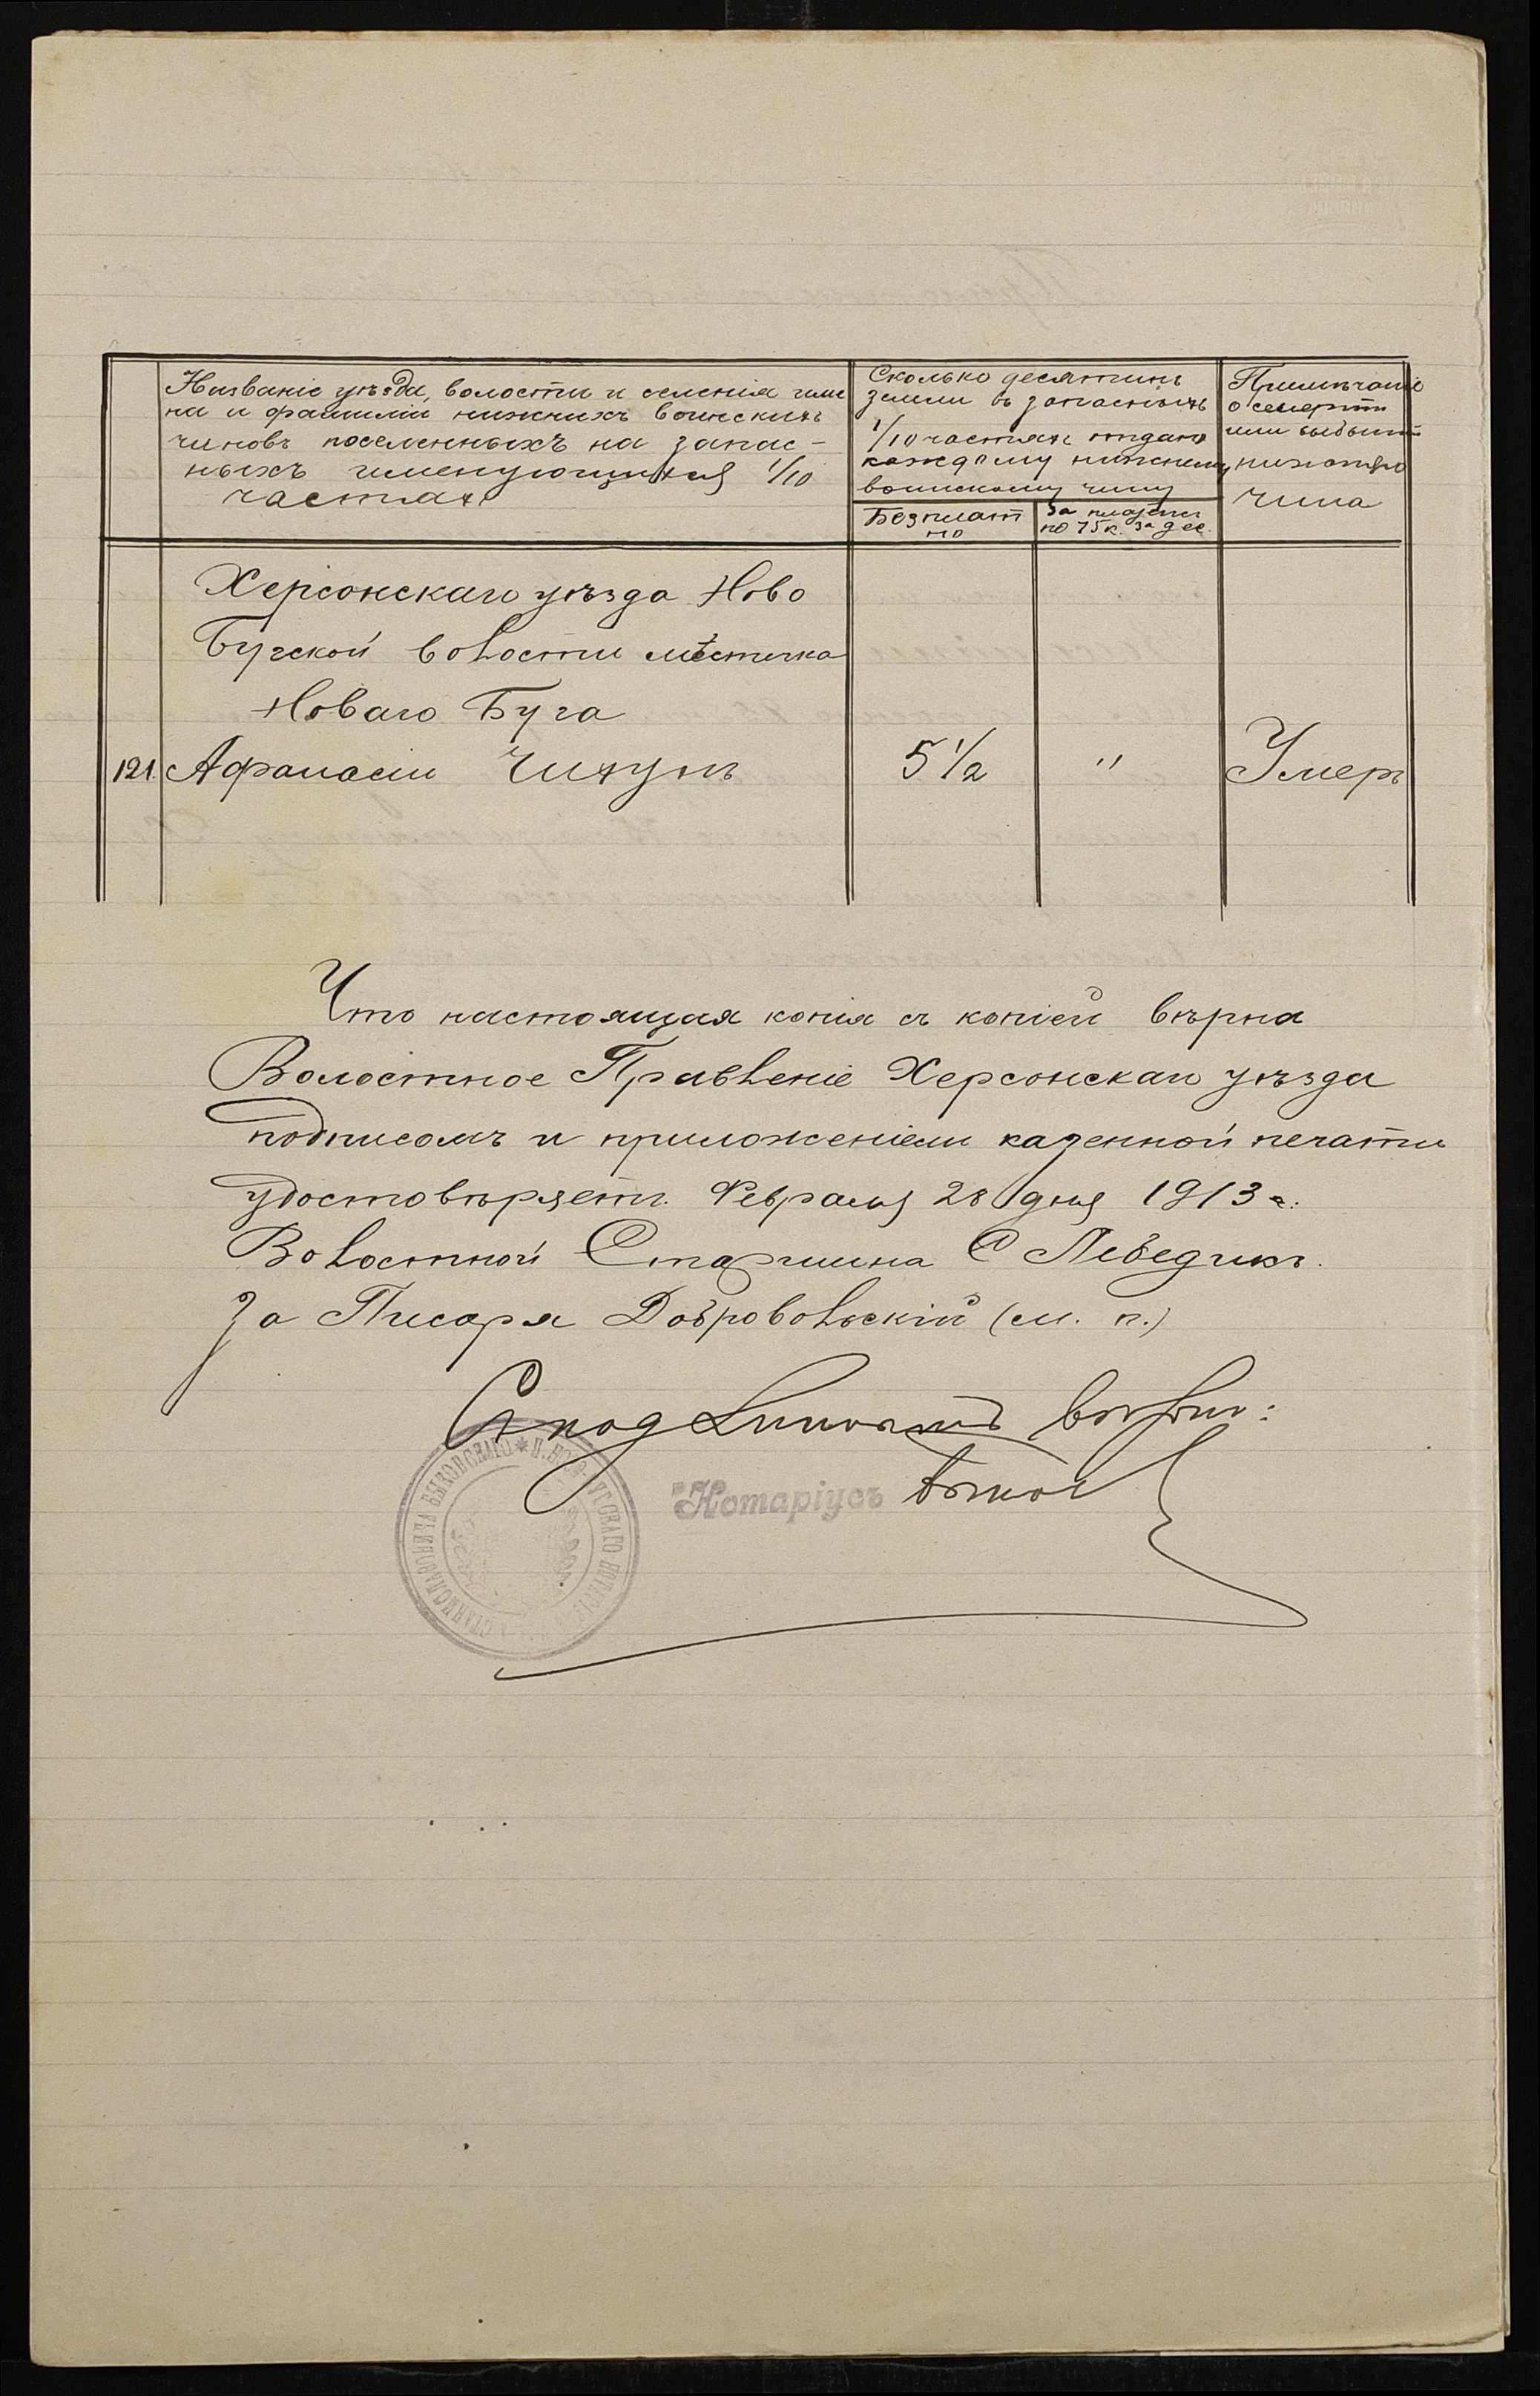 Названіе уѣзда, волости и селенія име
на и фамиліи нижнихъ воинскихъ
чиновъ поселенныхъ на запас-
ныхъ именующихся 1/10
частяхъ
Сколько десятинъ
земли въ запасныхъ
1/10 частяхъ отдано
каждому нижнему
воинскому чину
Безплат
но
За платежи
по 75 к. за дес.
Примѣчаніе
о смерти
или выбытіи
нижняго
чина
Херсонскаго уѣзда Ново
Бугской волости мѣстечка
Новаго Буга
121. Афанасій 5 1/2 " Умеръ
Что настоящая копія съ копіей вѣрна
Волостное Правленіе Херсонскаго уѣзда
подписомъ и приложеніемъ казенной печати
удостовѣряетъ. Февраля 28 дня 1913 г.
Волостной Старшина С Лебедикъ.
За Писаря Добровольскій (м. п.)
С подлиннымъ вѣрно:
Нотаріусъ